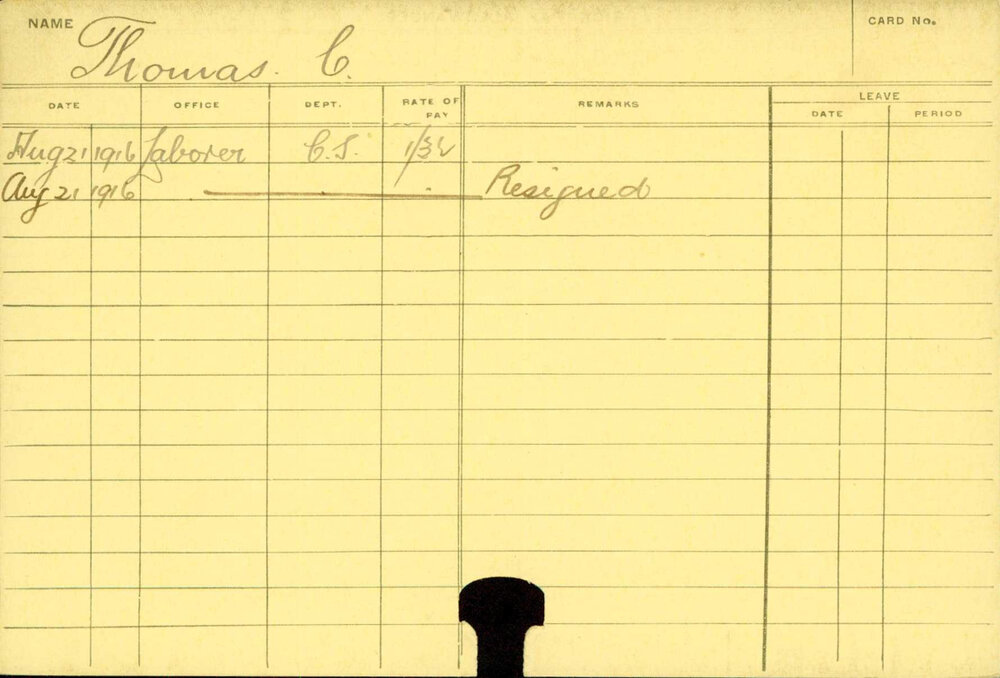 NAME Thomas. C. CARD No.
DATE OFFICE DEPT. RATE OF PAY REMARKS LEAVE
DATE PERIOD
Aug 21 1916 Laborer C.S.
Aug 21 1916 Resigned